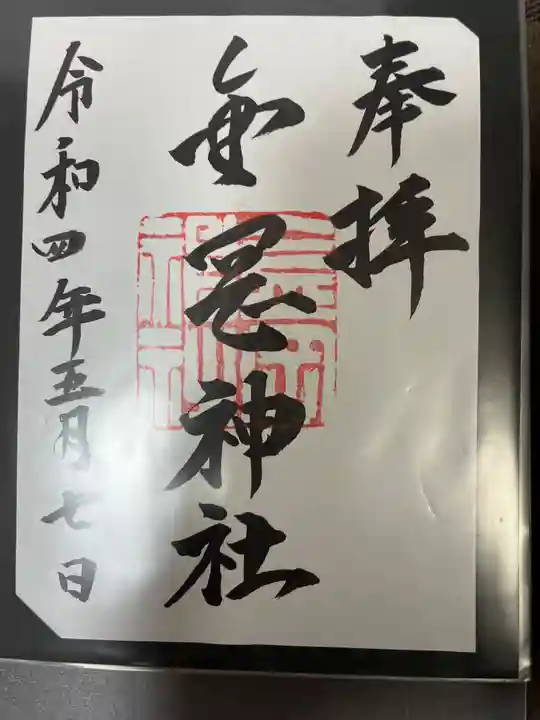 奉拝
金岡神社
令和四年五月七日